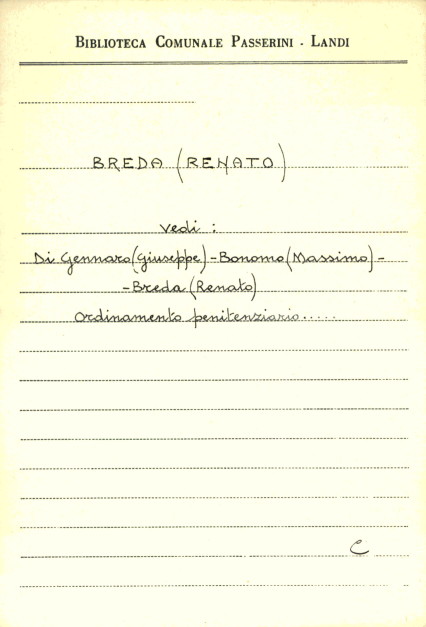 BIBLIOTECA COMUNALE PASSERINI - LANDI
BREDA (RENATO)
vedi :
Di Gennaro (Giuseppe) - Bonomo (Massimo) -
- Breda (Renato)
Ordinamento penitenziario.....
C